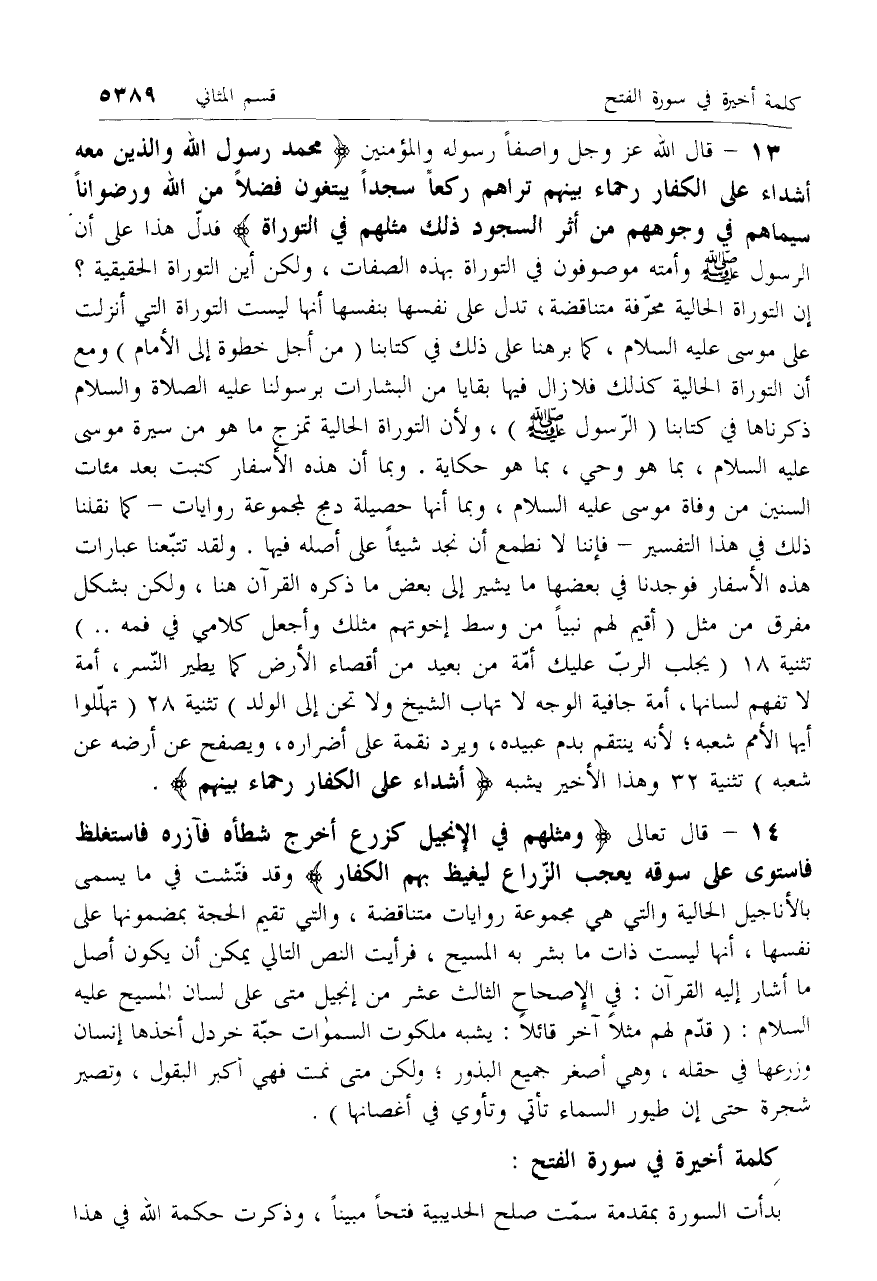 كلمة أخيرة في سورة الفتح قسم المثاني ٥٣٨٩
١٣ – قال الله عز وجل واصفاً رسوله والمؤمنين ﴿ محمد رسول الله والذين معه
أشداء على الكفار رحماء بينهم تراهم ركعاً سجداً يبتغون فضلاً من الله ورضواناً
سيماهم في وجوههم من أثر السجود ذلك مثلهم في التوراة ﴾ فدلّ هذا على أن
الرسول ﷺ وأمته موصوفون في التوراة بهذه الصفات ، ولكن أين التوراة الحقيقية ؟
إن التوراة الحالية محرّفة متناقضة، تدل على نفسها بنفسها أنها ليست التوراة التي أنزلت
على موسى عليه السلام ، كما برهنا على ذلك في كتابنا ( من أجل خطوة إلى الأمام ) ومع
أن التوراة الحالية كذلك فلازال فيها بقايا من البشارات برسولنا عليه الصلاة والسلام
ذكرناها في كتابنا ( الرّسول ﷺ ) ، ولأن التوراة الحالية تمزج ما هو من سيرة موسى
عليه السلام ، بما هو وحي ، بما هو حكاية . وبما أن هذه الأسفار كتبت بعد مئات
السنين من وفاة موسى عليه السلام ، وبما أنها حصيلة دمج لمجموعة روايات – كما نقلنا
ذلك في هذا التفسير – فإننا لا نطمع أن نجد شيئاً على أصله فيها . ولقد تتبّعنا عبارات
هذه الأسفار فوجدنا في بعضها ما يشير إلى بعض ما ذكره القرآن هنا ، ولكن بشكل
مفرق من مثل ( أقيم لهم نبياً من وسط إخوتهم مثلك وأجعل كلامي في فمه .. )
تثنية ١٨ ( يجلب الربّ عليك أمّة من بعيد من أقصاء الأرض كما يطير النّسر، أمة
لا تفهم لسانها، أمة جافية الوجه لا تهاب الشيخ ولا تحن إلى الولد ) تثنية ٢٨ ( تهلّلوا
أيها الأمم شعبه؛ لأنه ينتقم بدم عبيده، ويرد نقمة على أضراره، ويصفح عن أرضه عن
شعبه ) تثنية ٣٢ وهذا الأخير يشبه ﴿ أشداء على الكفار رحماء بينهم ﴾ .
١٤ – قال تعالى ﴿ ومثلهم في الإنجيل كزرع أخرج شطأه فآزره فاستغلظ
فاستوى على سوقه يعجب الزّراع ليغيظ بهم الكفار ﴾ وقد فتّشت في ما يسمى
بالأناجيل الحالية والتي هي مجموعة روايات متناقضة ، والتي تقيم الحجة بمضمونها على
نفسها ، أنها ليست ذات ما بشر به المسيح ، فرأيت النص التالي يمكن أن يكون أصل
ما أشار إليه القرآن : في الإصحاح الثالث عشر من إنجيل متى على لسان المسيح عليه
السلام : ( قدّم لهم مثلاً آخر قائلاً : يشبه ملكوت السمٰوات حبّة خردل أخذها إنسان
وزرعها في حقله ، وهي أصغر جميع البذور ؛ ولكن متى نمت فهي أكبر البقول ، وتصير
شجرة حتى إن طيور السماء تأتي وتأوي في أغصانها ) .
كلمة أخيرة في سورة الفتح :
بدأت السورة بمقدمة سمّت صلح الحديبية فتحاً مبيناً ، وذكرت حكمة الله في هذا